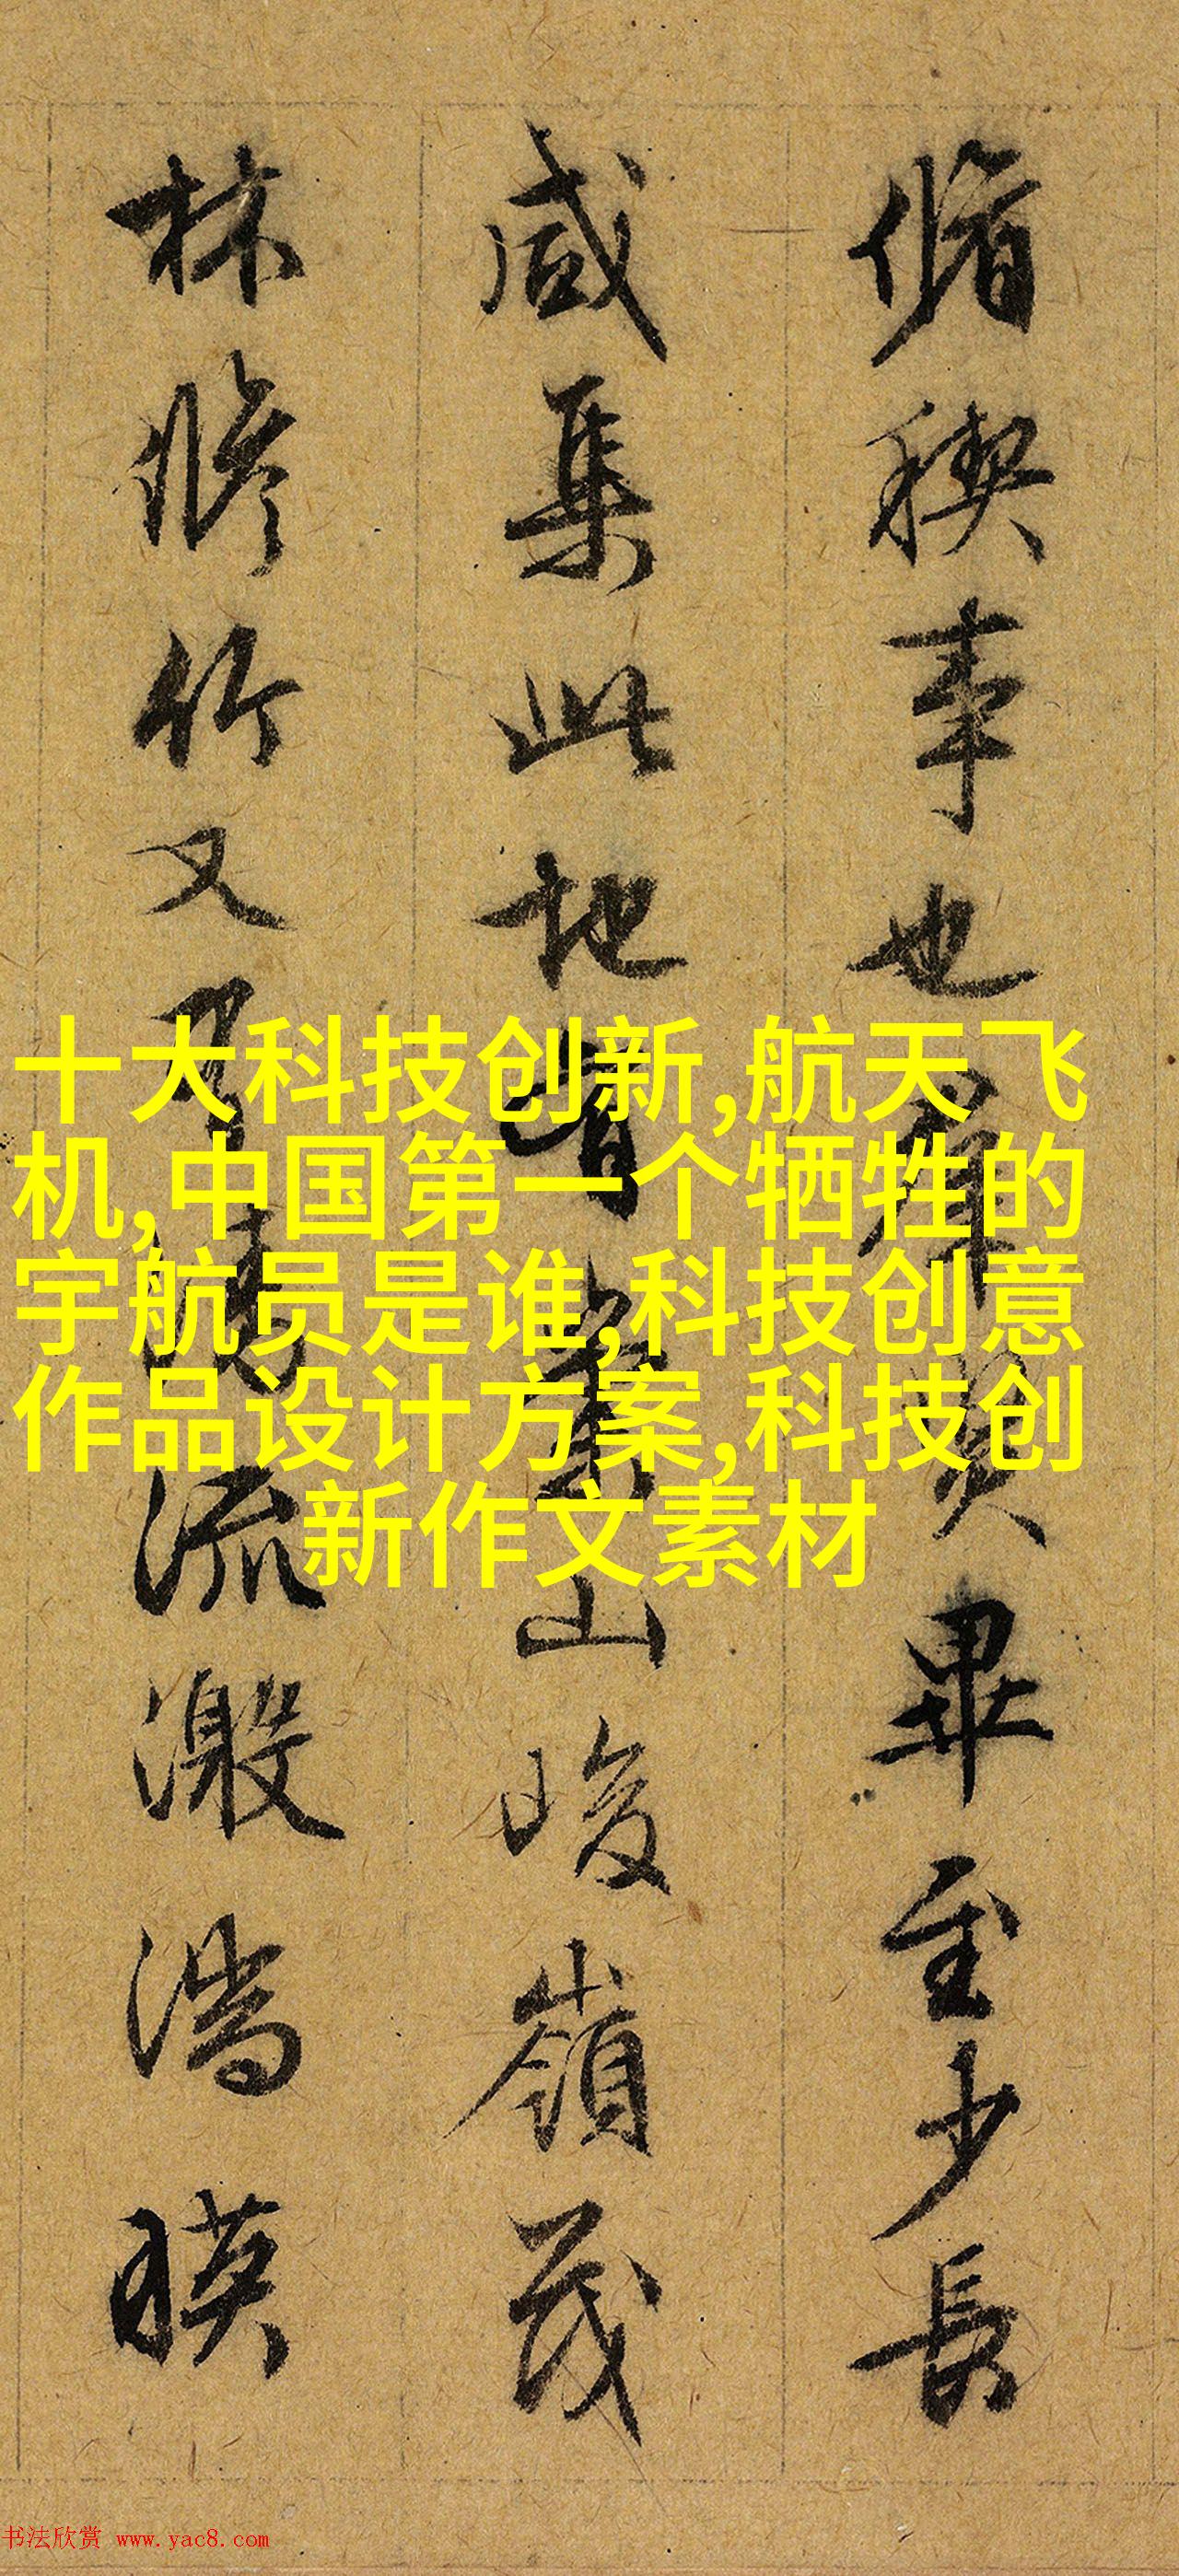 脩稧事也群賢畢至少長
咸集此地有崇山峻領茂
林脩竹又有清流激湍暎
十大科技创新,航天飞
机,中国第一个牺牲的
宇航员是谁,科技创意
作品设计方案,科技创
新作文素材
书法欣赏 www.yac8.com